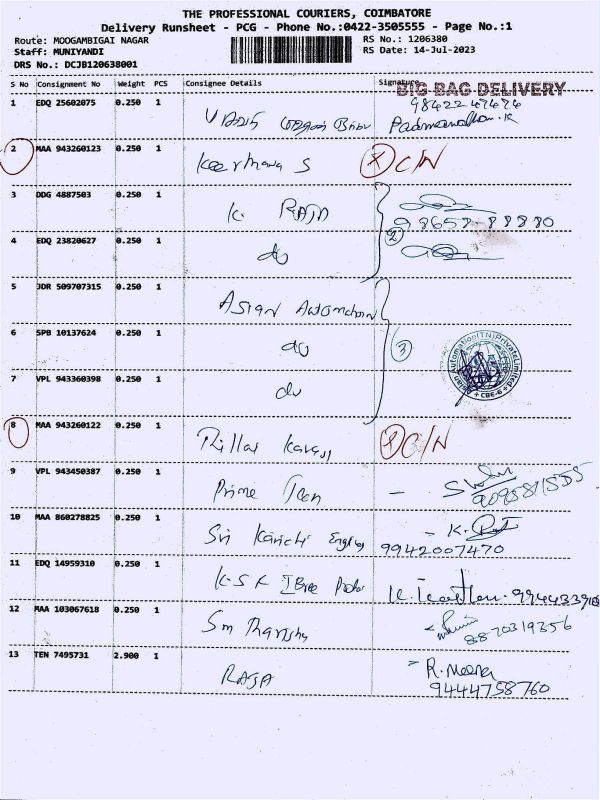 THE PROFESSIONAL COURIERS, COIMBATORE
Delivery Runsheet - PCG - Phone No.:0422-3505555 - Page No.:1
Route: MOOGAMBIGAI NAGAR RS No.: 1206380
Staff: MUNIYANDI RS Date: 14-Jul-2023
DRS No.: DCJB120638001
S No Consignment No Weight PCS Consignee Details Signature
BIG BAG DELIVERY
1 EDQ 25602075 0.250 1 98422 47474
Padmanathan.K
2 MAA 943260123 0.250 1 Keerthana S X C/N
3 DDG 4887503 0.250 1 K. RAJA
98658-88880
4 EDQ 23820627 0.250 1 do 2
5 JDR 509707315 0.250 1 Asian Automation
6 SPB 10137624 0.250 1 do 3
7 VPL 943360398 0.250 1 do
Automation(TN)Private Limited
CBE-6
8 MAA 943260122 0.250 1 X C/N
9 VPL 943450387 0.250 1 Prime
10 MAA 860278825 0.250 1 Sri - K.
9942007470
11 EDQ 14959310 0.250 1 K.S.K
12 MAA 103067618 0.250 1 Sm
8870319356
13 TEN 7495731 2.900 1 RAJA - R. Meena
9444758760